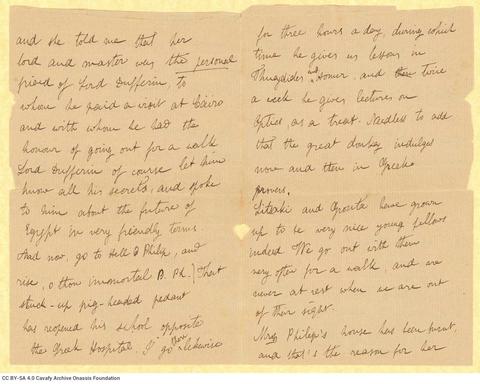 and she told me that her
lord and master was the personal
friend of Lord Dufferin, to
whom he paid a visit at Cairo
and with whom he had the
honour of going out for a walk
Lord Dufferin of course let him
know all his secrets, and spoke
to him about the future of
Egypt in very friendly terms
And now, go to Hell O Philip, and
rise, o thou immortal Pd.! That
stuck-up pig-headed pedant
has reopened his school opposite
the Greek Hospital. I go there likewise
for three hours a day, during which
time he gives us lessons in
Thucydides and Homer, and twice
a week he gives lectures on
, as a treat. Needless to add
that the great donkey indulges
now and then in Greek
proses.
and have grown
up to be very nice young fellows
indeed. We go out with them
very often for a walk, and are
never at rest when we are out
of their sight.
Mrs Philip's house has been burnt,
and that's the reason for her
CC BY-SA 4.0 Cavafy Archive Onassis Foundation